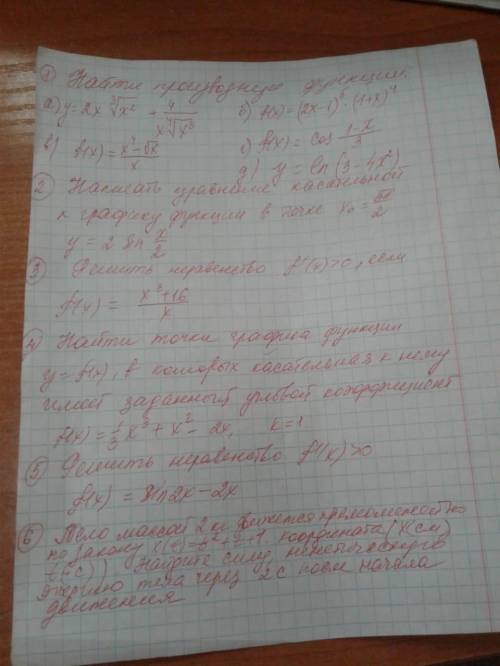 ① Найти производную функции.
а) y = 2x ∛x² + 4/(x ∛x³) б) f(x) = (2x-1)⁵·(1+x)⁴
в) f(x) = (x²-√x)/x с) f(x) = cos (1-x)/3
д) y = ln(3-4x²)
2 Написать уравнение касательной
к графику функции в точке x₀ =
y = 2 sin x/2
3 Решить неравенство f'(x)>0, если
f(x) = (x³+16)/x
4 Найти точки графика функции
y = f(x), в которых касательная к нему
имеет заданный угловой коэффициент
f(x) = 1/3 x³ + x² - 2x, k=1
5 Решить неравенство f'(x)>0
f(x) = sin2x-2x
6 Тело массой 2 кг движется прямолинейно
по закону x(t)=t²+ +1. координата (x(см)
t(-с)). Найдите силу, кинетическую
энергию тела через 2с после начала
движения